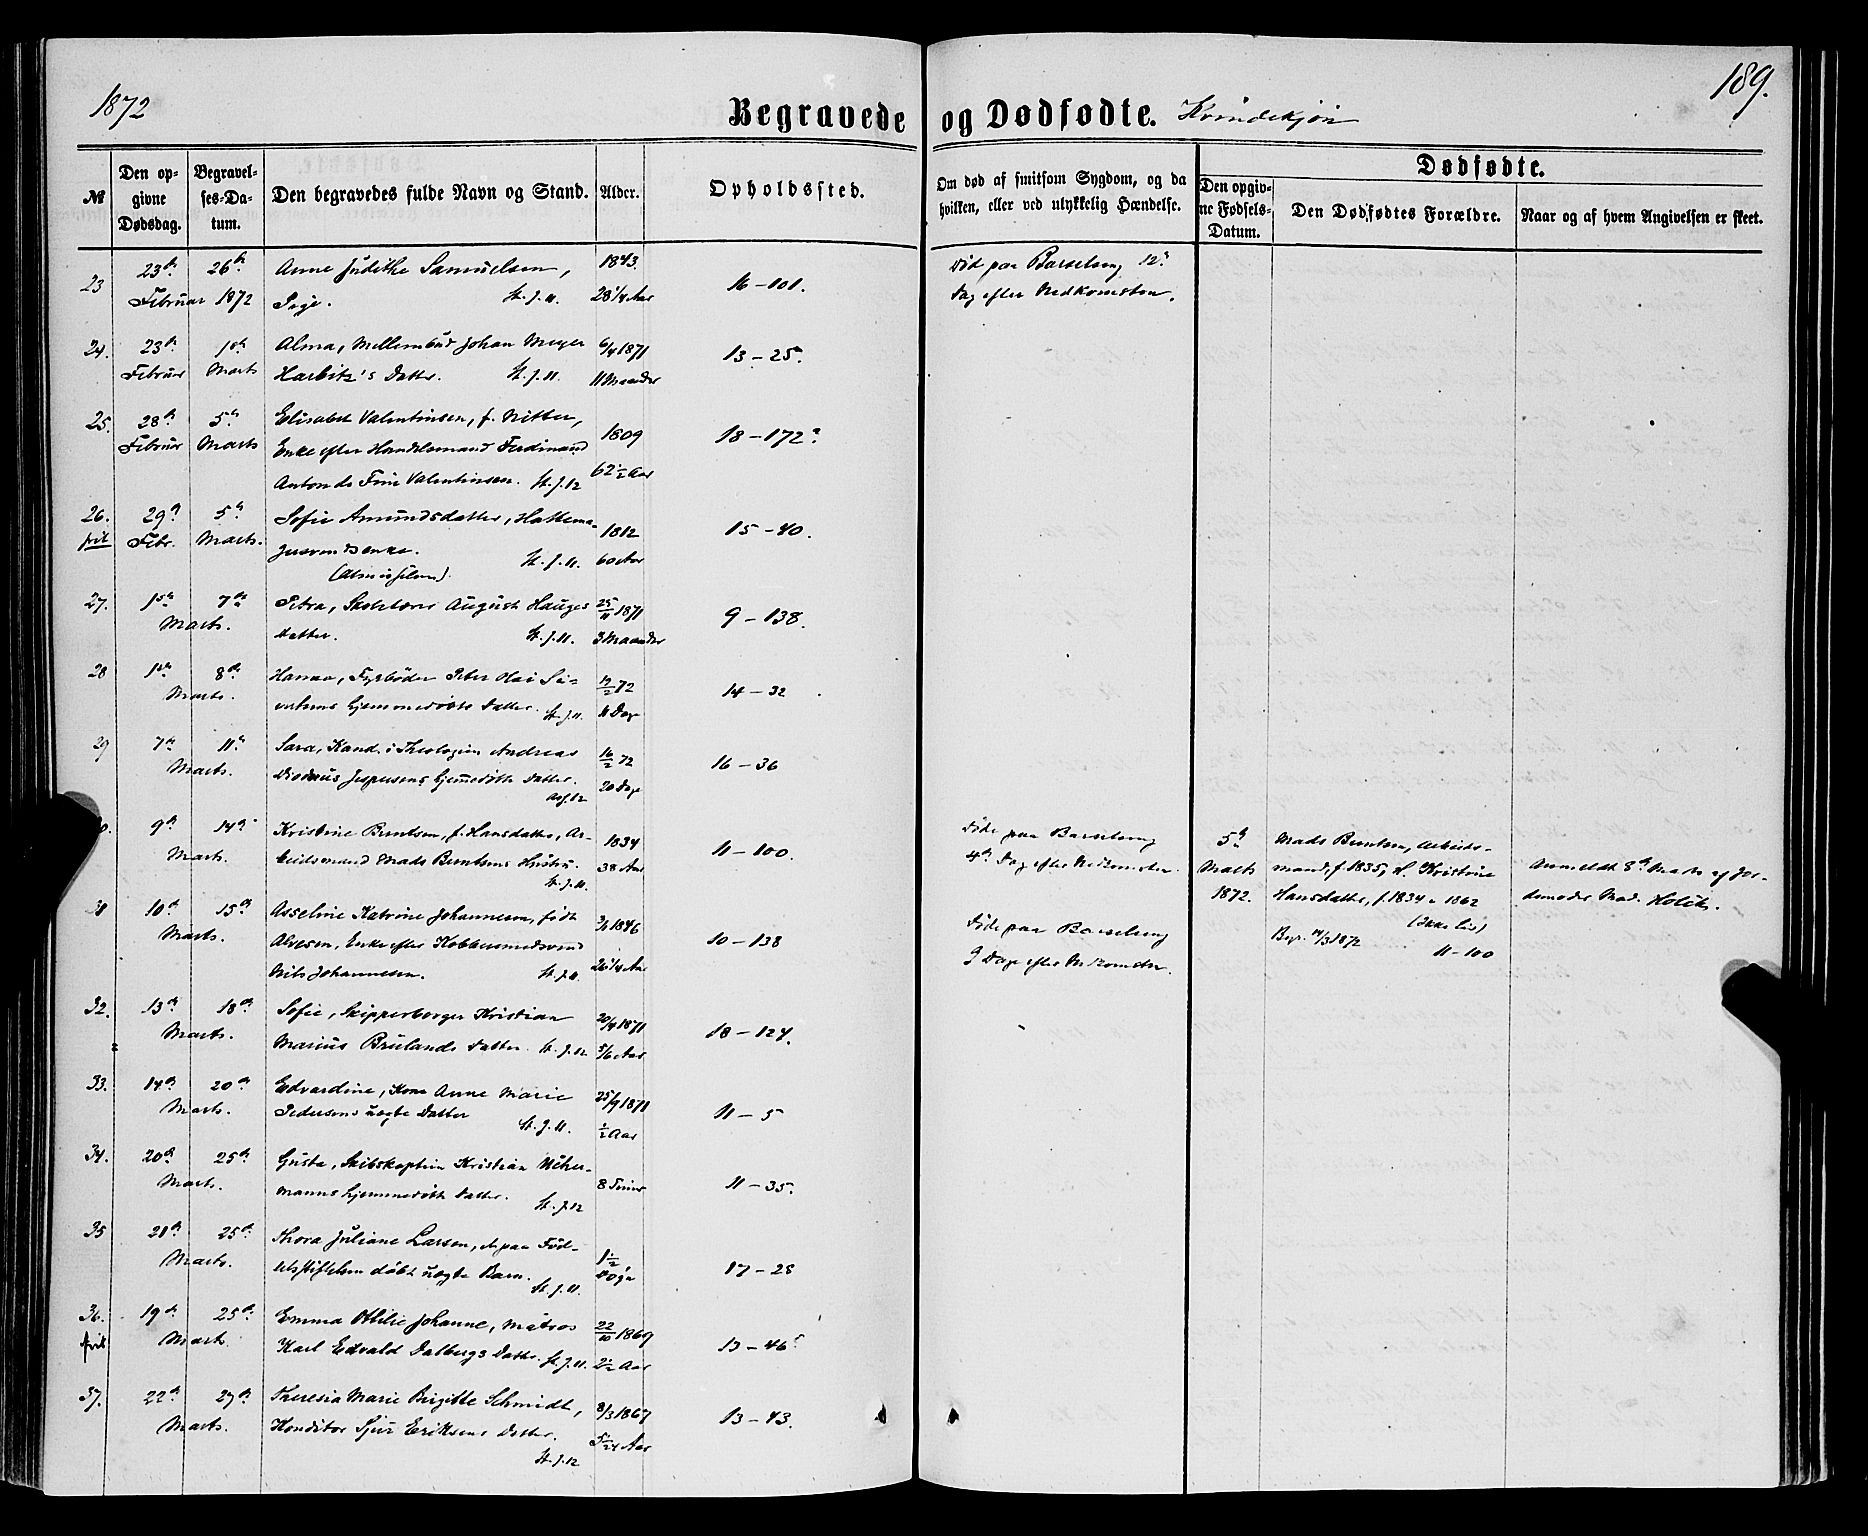 1872
189.
Begravede og Dødfødte. Kvindekjøn
Dødfødte.
№ Den opgivne Dødsdag. Begravelses-Datum. Den begravedes fulde Navn og Stand. Alder. Opholdssted. Om død af smitsom Sygdom, og da hvilken, eller ved ulykkelig Hændelse. Den opgivne Fødsels-Datum. Den Dødfødtes Forældre. Naar og af hvem Angivelsen er skeet.
23 23de 26de Anne Judithe Samuelsen, 1843. 16-101. Død paa Barselseng 12te
Februar 1872 Pige. St. J. 11. 28 1/4 Aar Dag efter Nedkomsten.
24. 23de 1ste Alma, Mellembud Johan Meyer 6/4 1871 13-25.
Februar Marts Harbitz's Datter. St. J. 11. 11 Maaneder
25. 28de 5te Elisabet Valentinsen, f. Nitter, 1809 18-172a
Februar Marts Enke efter Handelsmand Ferdinand
Anton de Fine Valentinsen. St. J. 12 62 1/2 Aar
26. 29de 5te Sofie Amundsdatter, Hattema- 1812 15-40.
frit Febr. Marts. gersvends enke. St. J. 11. 60 Aar
27. 1ste 7de Petra, August Hauges 25/11 1871 9-138.
Marts. Datter. St. J. 11. 3 Maaneder
28 1ste 8de Hanna, Fyrbøder Peter Olai Si- 19/2 72 14-32
Marts. vertsens hjemmedøbte Datter. St. J. 11. 11 Dage
29 7de 11te Sara, Kand. i Theologien Andreas 16/2 72 16-36
Marts. Jespersens hjemmedøbte Datter. 20 Dage
9de 14de Kristine Berntsen, f. Hansdatter, Ar- 1834 11-100. Døde paa Barselseng 5te Mads Berntsen, Arbeids-
Marts. beidsmand Mads Berntsens Hustru. 38 Aar 4de Dag efter Nedkomsten. Marts mand, f. 1835, H. Kristine Anmeldt 8de Marts af Jor-
St. J. 11. 1872. Hansdatter, f. 1834 demoder Mad.
31 10de 15de Asseline Katrine Johannesen, født 1846 10-138 Døde paa Barselseng (Ikke Liv)
Marts. Alvesen, Enke efter Kobbersmedsvend Begr. 14/3 1872 11-100
Nils Johannesen. St. J. 11. 26 1/4 Aar 9 Dage efter Nedkomsten.
32. 13de 18de Sofie, Skipperborger Kristian 20/4 1871 18-127.
Marts. Marius Brulands Datter. St. J. 12 5/6 Aar
33. 14de 20de Edvardine, Kone Anne Marie 25/9 1871 11-5
Marts. Pedersens uægte Datter St. J. 11. 1/2 Aar
34. 20de 25de Gusta, Skibskaptein Kristian
Marts. manns hjemmedøbte Datter. St. J. 12 8 Timer 11-35.
35 21de 25de Thora Juliane Larsen, et paa Fød-
Marts. selsstiftelsen døbt uægte Barn. St. J. 11. 1 1/2 Døgn 17-28
36. 19de 25de Emma Otilie Johanne, Matros 22/10 1869 13-46
frit Marts. Karl Edvald Dalbergs Datter. St. J. 11. 2 1/2 Aar
37. 22de 27de Theresia Marie Birgitte Schmidt, 8/3 1867 13-43.
Marts. Konditor Sjur Eriksens Datter. 5 1/24 Aar
St. J. 12